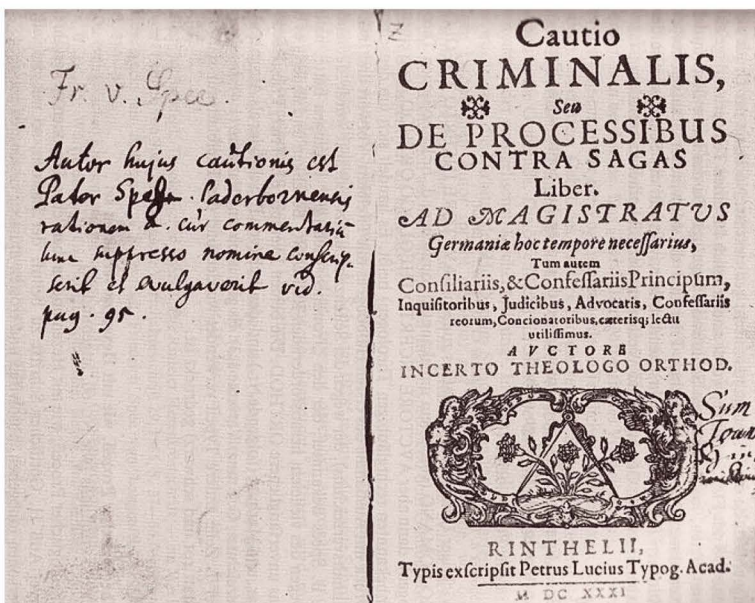 Fr. v. Spee.
Autor hujus cautionis est
Pater Spee Paderbornensis
rationem cur commentariū
hunc suppresso nomine conscrip-
serit et evulgaverit vid.
pag. 95.
Z
Cautio
CRIMINALIS,
Seu
DE PROCESSIBUS
CONTRA SAGAS
Liber.
AD MAGISTRATUS
Germaniæ hoc tempore neceſſarius,
Tum autem
Conſiliariis, & Confeſſariis Principum,
Inquiſitoribus, Judicibus, Advocatis, Confeſſariis
reorum, Concionatoribus, cæterisq; lectu
utiliſſimus.
AVCTORE
INCERTO THEOLOGO ORTHOD.
Sum
RINTHELII,
Typis exſcripſit Petrus Lucius Typog. Acad.
M DC XXXI